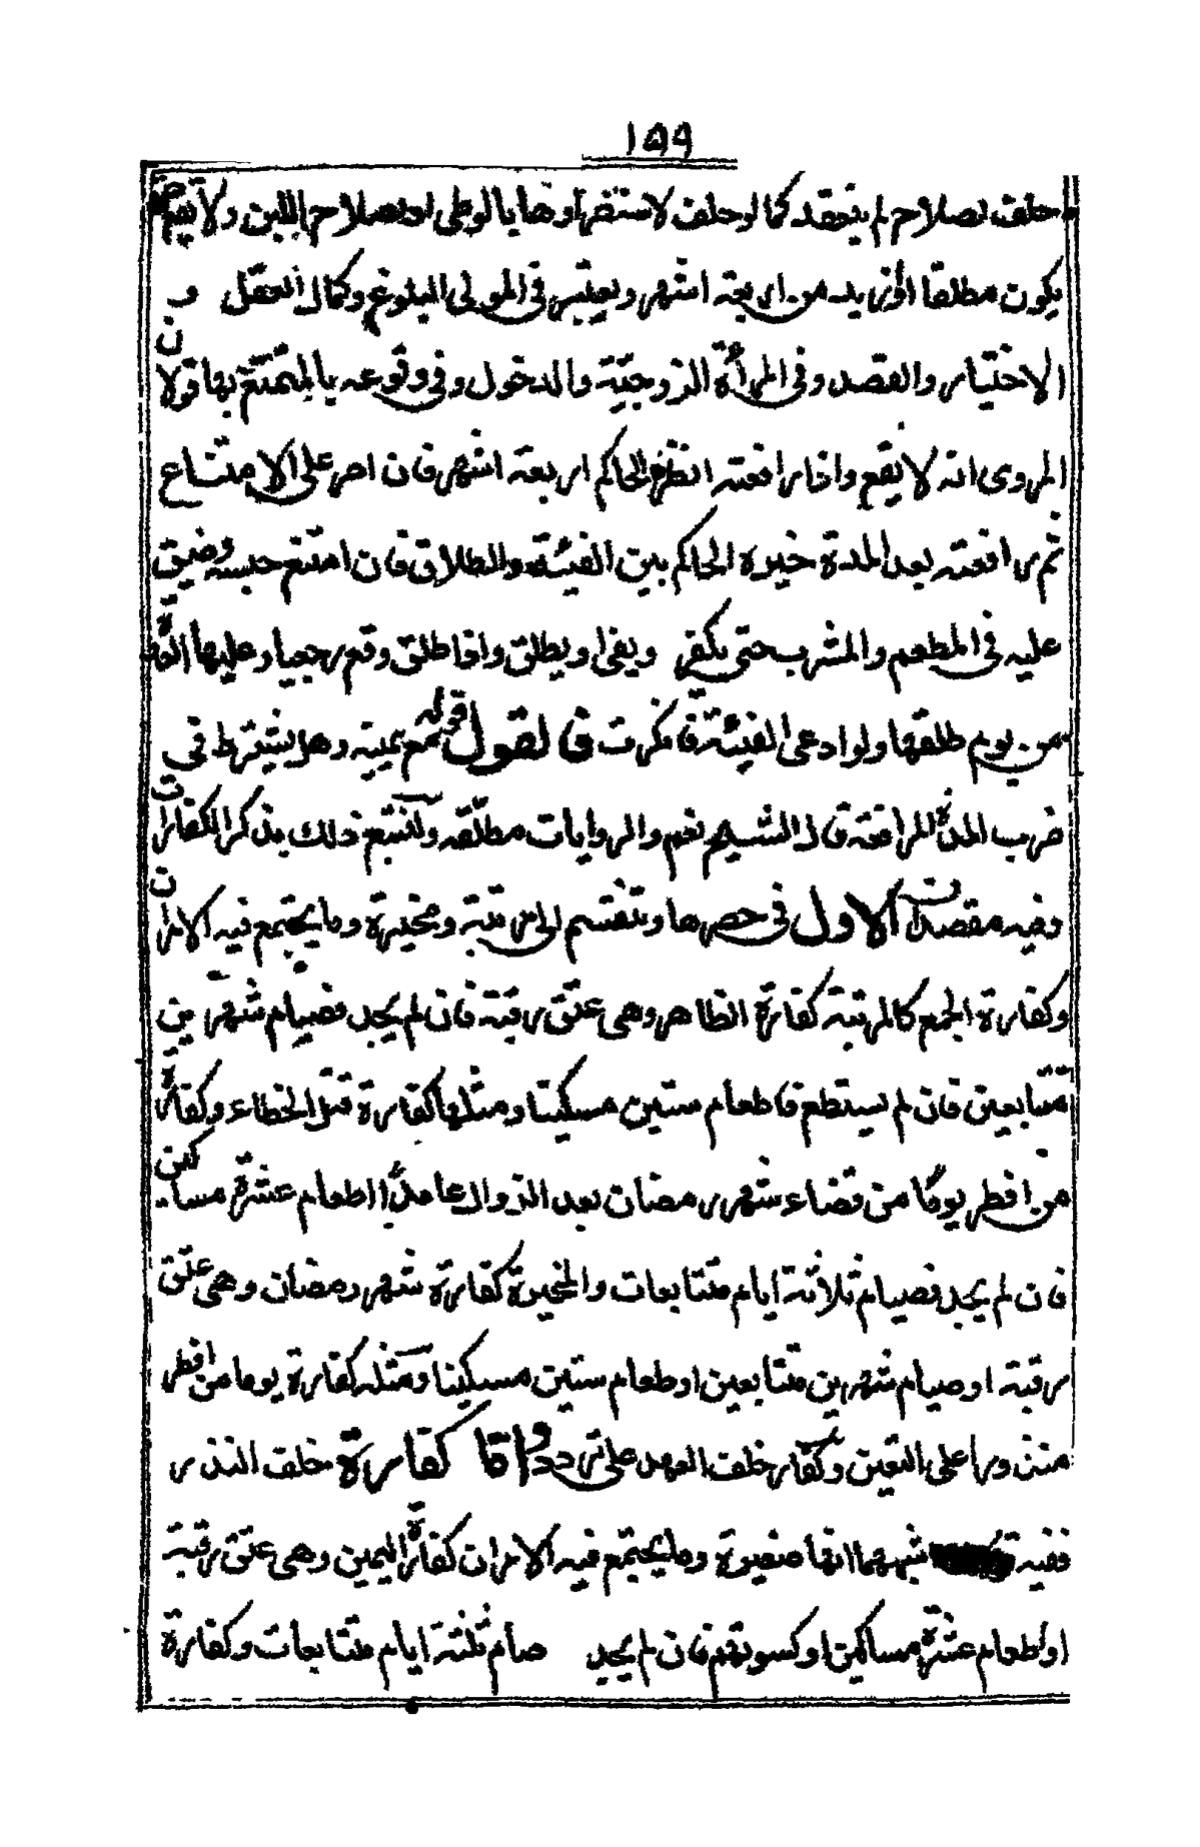 ١٥٩
حلف لصلاح لم ينعقد كما لو حلف لاستضرارها بالوطى او لصلاح اللبن ولا يقع حتى
يكون مطلقا او ازيد من اربعة اشهر ويعتبر فى المولى البلوغ وكمال العقل و
الاختيار والقصد وفى المرأة الزوجية والدخول وفى وقوعه بالمتمتع بها قولان
المروى انه لا يقع واذا رافعته انظره الحاكم اربعة اشهر فان اصر على الامتناع
ثم رافعته بعد المدة خيره الحاكم بين الفيئة والطلاق فان امتنع حبسه وضيق
عليه فى المطعم والمشرب حتى يكفر ويفى او يطلق واذا طلق وقع رجعيا وعليها العدة
من يوم طلقها ولو ادعى الفيئة فانكرت فالقول قوله مع يمينه وهل يشترط فى
ضرب المدة المرافعة قال الشيخ نعم والروايات مطلقه ولنتبع ذلك بذكر الكفارات
وفيه مقصدان الاول فى حصرها وتنقسم الى مرتبة ومخيرة وما يجتمع فيه الامران
وكفارة الجمع فالمرتبة كفارة الظاهر وهى عتق رقبة فان لم يجد فصيام شهرين
متتابعين فان لم يستطع فاطعام ستين مسكينا ومثلها كفارة قتل الخطاء وكفارة
من افطر يوما من قضاء شهر رمضان بعد الزوال عامدا اطعام عشرة مساكين
فان لم يجد فصيام ثلاثة ايام متتابعات والمخيرة كفارة شهر رمضان وهى عتق
رقبة او صيام شهرين متتابعين او طعام ستين مسكينا ومثله كفارة يوما من افطر
منذورا على التعين وكفارة خلف العهد على تردد واما كفارة خلف النذر
ففيه شبههما انها صغيرة وما يجتمع فيه الامران كفارة اليمين وهى عتق رقبة
او اطعام عشرة مساكين او كسوتهم فان لم يجد صام ثلثة ايام متتابعات وكفارة